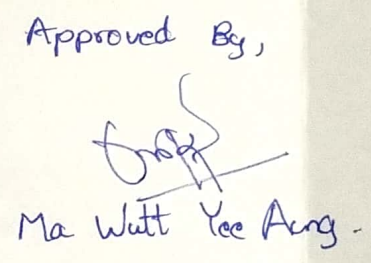 Approved By,
Ma Wutt Yee Aung.